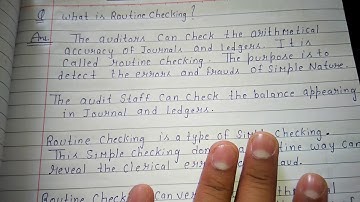 Q What is Routine Checking?
Ans. The auditors Can Check the arithmetical
accuracy of Journals and ledgers. It is
Called routine checking. The purpose is to
detect the errors and frauds of Simple Nature.
The audit Staff Can Check the balance appearing
in Journal and ledgers.
Routine Checking is a type of Simple Checking.
This Simple checking done way Can
reveal the Clerical
Routine ver